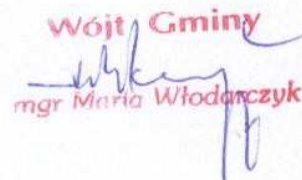 Wójt Gminy
mgr Maria Włodarczyk